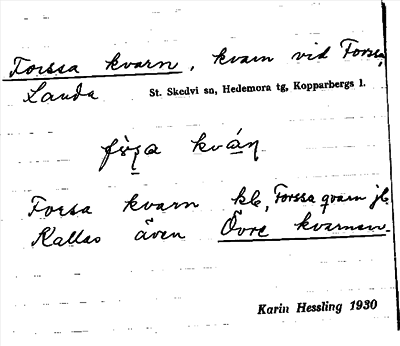 Forssa kvarn, kvarn vid Forssa,
Landa St. Skedvi sn, Hedemora tg, Kopparbergs l.
kván
Forsa kvarn kb, Forssa qvarn jb
Kallas även Övre kvarnen
Karin Hessling 1930